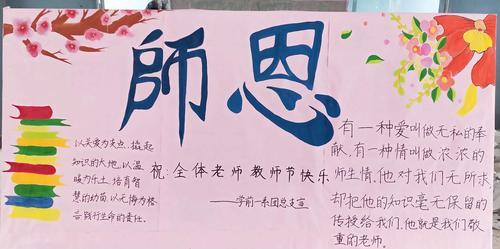 師恩
以关爱为支点，撬起
知识的大地。以温
暖为乐土，培育智
慧的幼苗，以无悔为格
言践行生命的责任。
祝：全体老师教师节快乐
——学前一系团总支宣
有一种爱叫做无私的奉
献，有一种情叫做浓浓的
师生情，他对我们无所求
却把他的知识毫无保留的
传授给我们，他就是我们敬
重的老师。